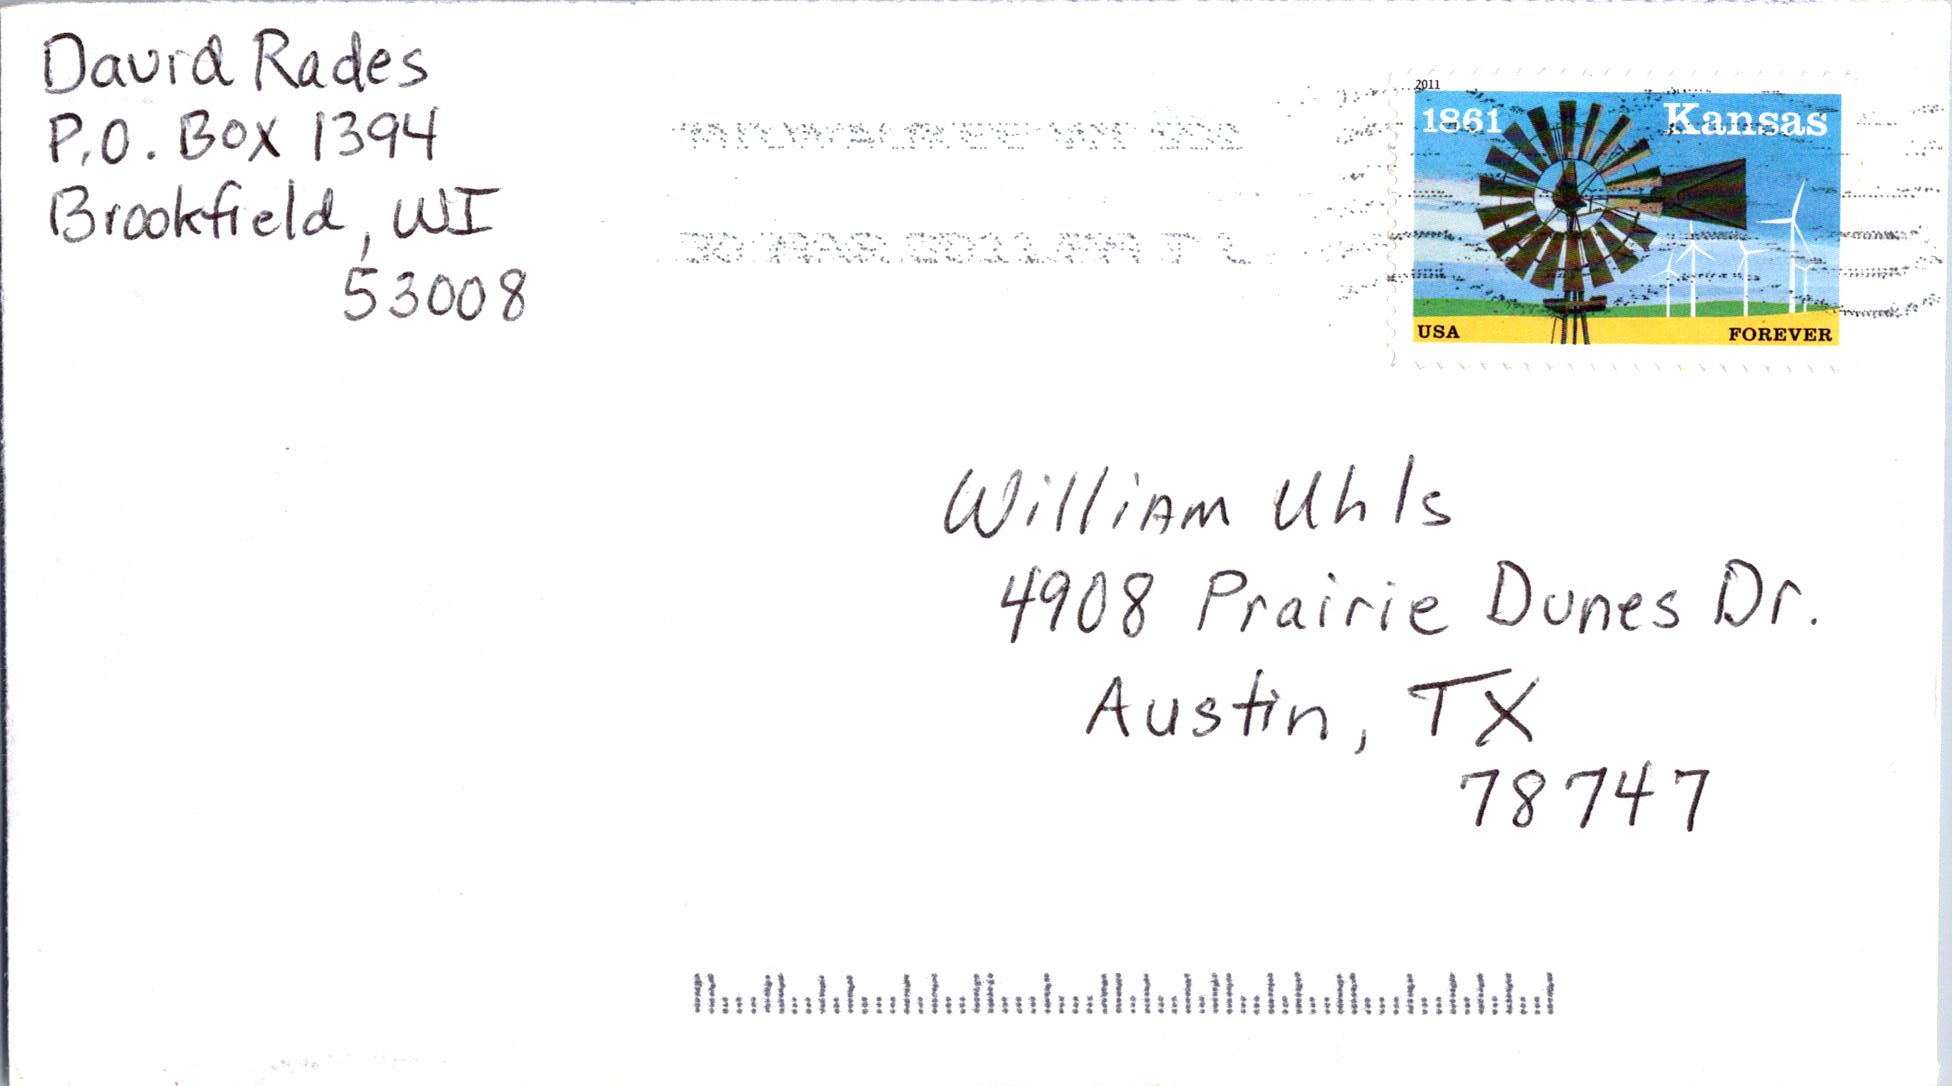 David Rades
P.O. Box 1394
Brookfield, WI
53008
MILWAUKEE WI 532
2011
1861 Kansas
USA FOREVER
William Uhls
4908 Prairie Dunes Dr.
Austin, TX
78747